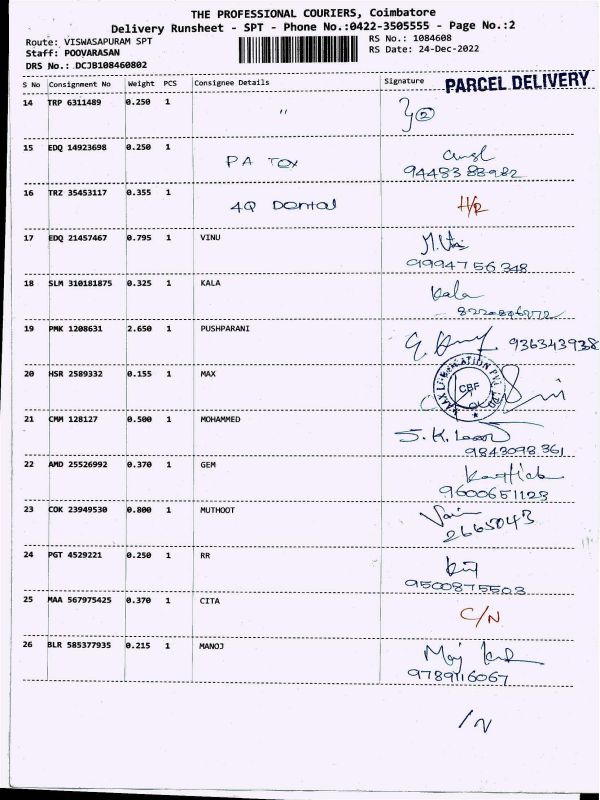 THE PROFESSIONAL COURIERS, Coimbatore
Delivery Runsheet - SPT - Phone No.:0422-3505555 - Page No.:2
Route: VISWASAPURAM SPT RS No.: 1084608
Staff: POOVARASAN RS Date: 24-Dec-2022
DRS No.: DCJB108460802
PARCEL DELIVERY
S No Consignment No Weight PCS Consignee Details Signature
14 TRP 6311489 0.250 1 "
15 EDQ 14923698 0.250 1 PA Tex
9448388982
16 TRZ 35453117 0.355 1 4Q Dental H/R
17 EDQ 21457467 0.795 1 VINU
9994756348
18 SLM 310181875 0.325 1 KALA Kala
19 PMK 1208631 2.650 1 PUSHPARANI 936343938
20 HSR 2589332 0.155 1 MAX CBF
21 CMM 128127 0.500 1 MOHAMMED S.K.
9843098361
22 AMD 25526992 0.370 1 GEM Karthick
9600651123
23 COK 23949530 0.800 1 MUTHOOT
2665043
24 PGT 4529221 0.250 1 RR
9500875503
25 MAA 567975425 0.370 1 CITA C/N
26 BLR 585377935 0.215 1 MANOJ
9789116067
/N